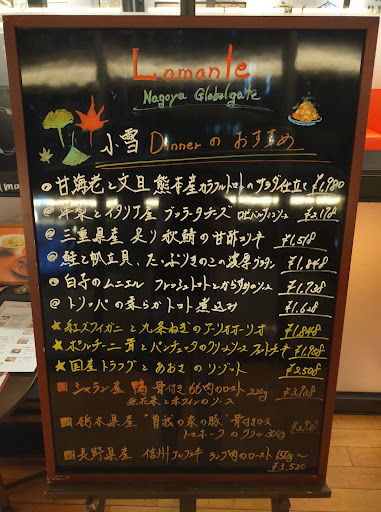 Lamante
Nagoya Globalgate
小雪 Dinner の おすすめ
甘海老と文旦 熊本産カラフルトマトのサラダ仕立て ¥1,980
洋梨とイタリア産 ブッラータチーズ ¥2,178
三重県産 炙り秋鯖の甘酢マリネ ¥1,518
鮭と帆立貝、たっぷりきのこの濃厚グラタン ¥1,848
白子のムニエル フレッシュトマトとからすみのソース ¥1,738
トリッパの柔らかトマト煮込み ¥1,628
★紅ズワイガニと九条ねぎのアーリオオーリオ ¥1,848
★ポルチーニ茸とパンチェッタのクリームソース フェットチーネ ¥1,958
★国産トラフグとあおさのリゾット ¥2,508
シャラン産 鴨 骨付きもも肉のロースト 220g ¥3,938
無花果とボワインのソース
栃木県産 "曽我の家の豚" 骨付きロース
トマホークのグリル 300g
長野県産 信州 ランプ肉のロースト 150g～
¥3,520